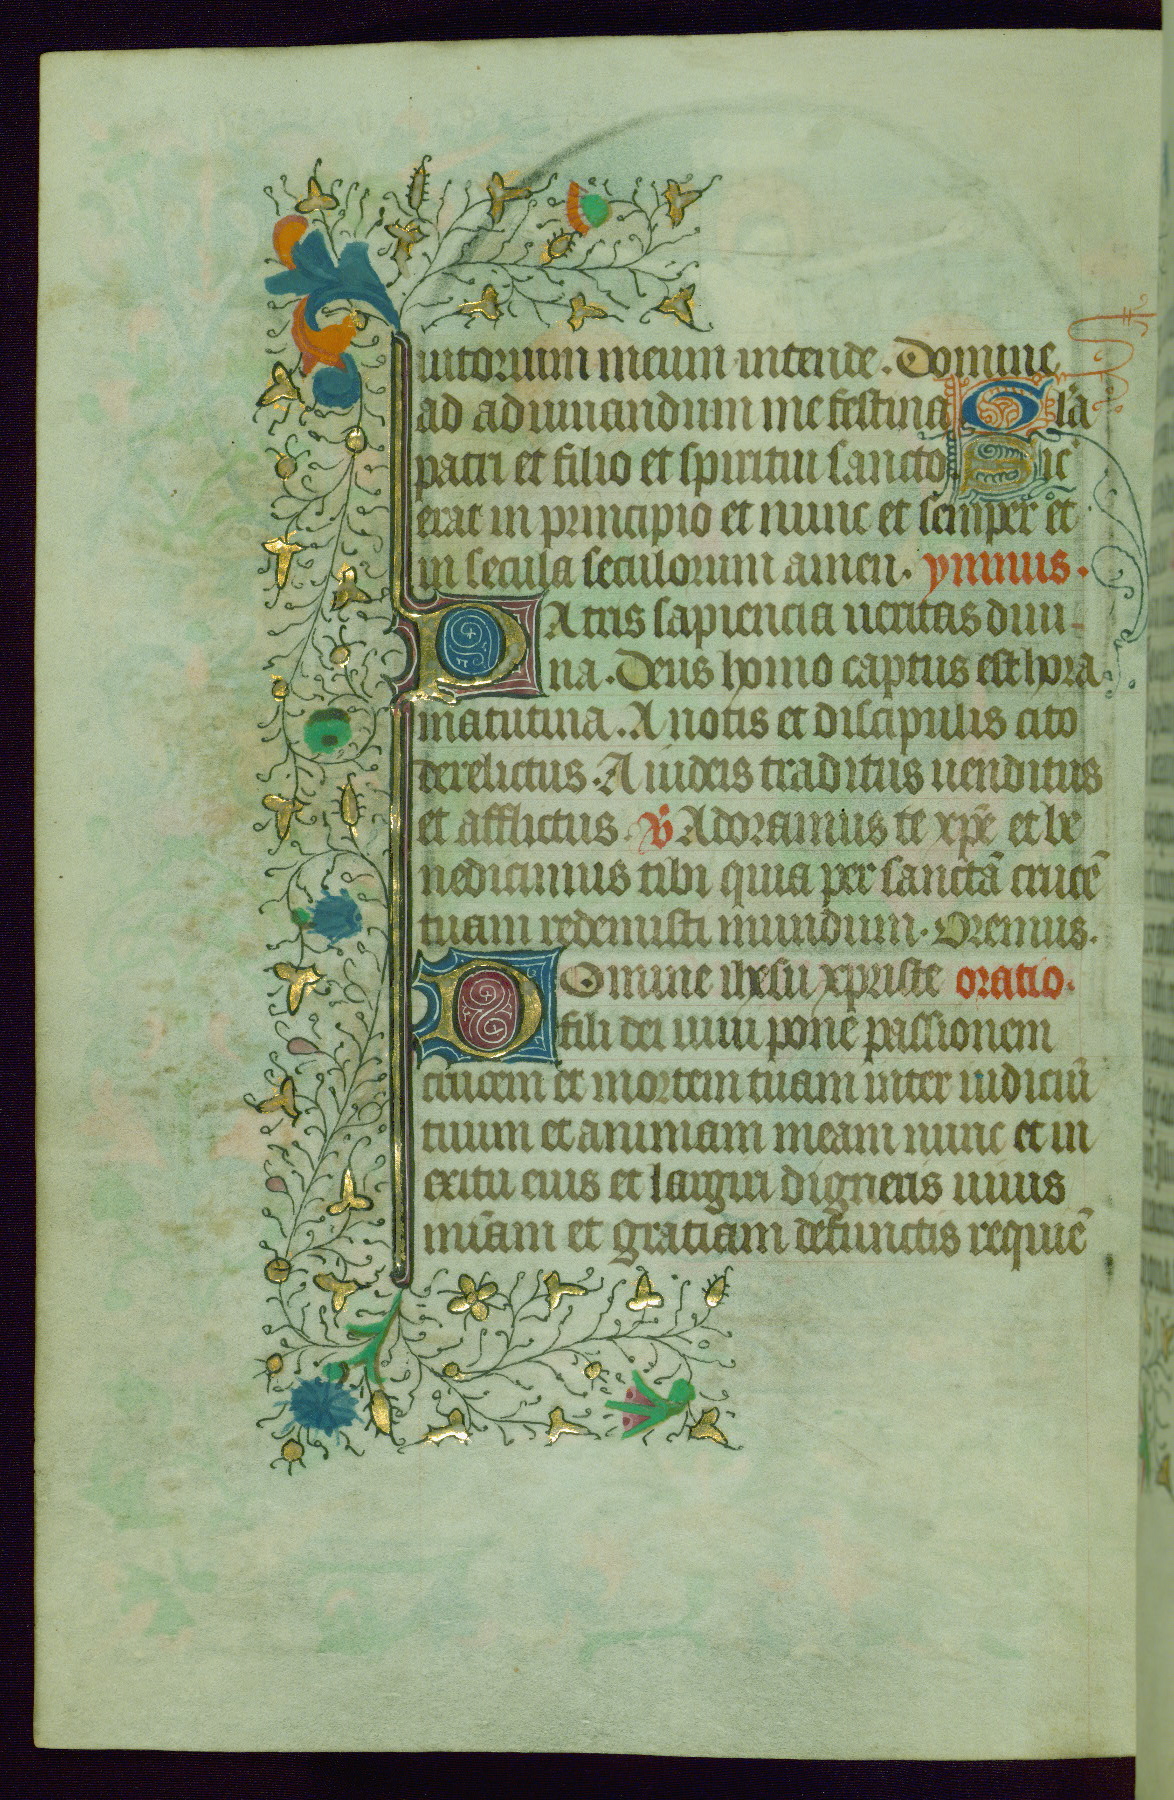 iutorium meum intende. Domine
ad adiuuandum me festina Gl'a
patri et filio et spiritui sancto Sic
erat in principio et nunc et semper et
in secula seculorum amen. ymnus.
PAtris sapiencia ueritas diui-
na. Deus homo captus est hora
matutina. A notis et discipulis cito
derelictus. A iudeis traditus uenditus
et afflictus. V̉ Adoramus te xp̄e et be
nedicimus tibi quia per sanctā crucē
tuam redemisti mundum. Oremus.
DOmine ihesu xpriste oratio.
fili dei uiui pone passionem
crucem et mortem tuam inter iudiciū
tuum et animam meam nunc et in
exitu eius et largiri digneris uiuis
mīam et gratiam defunctis requiē